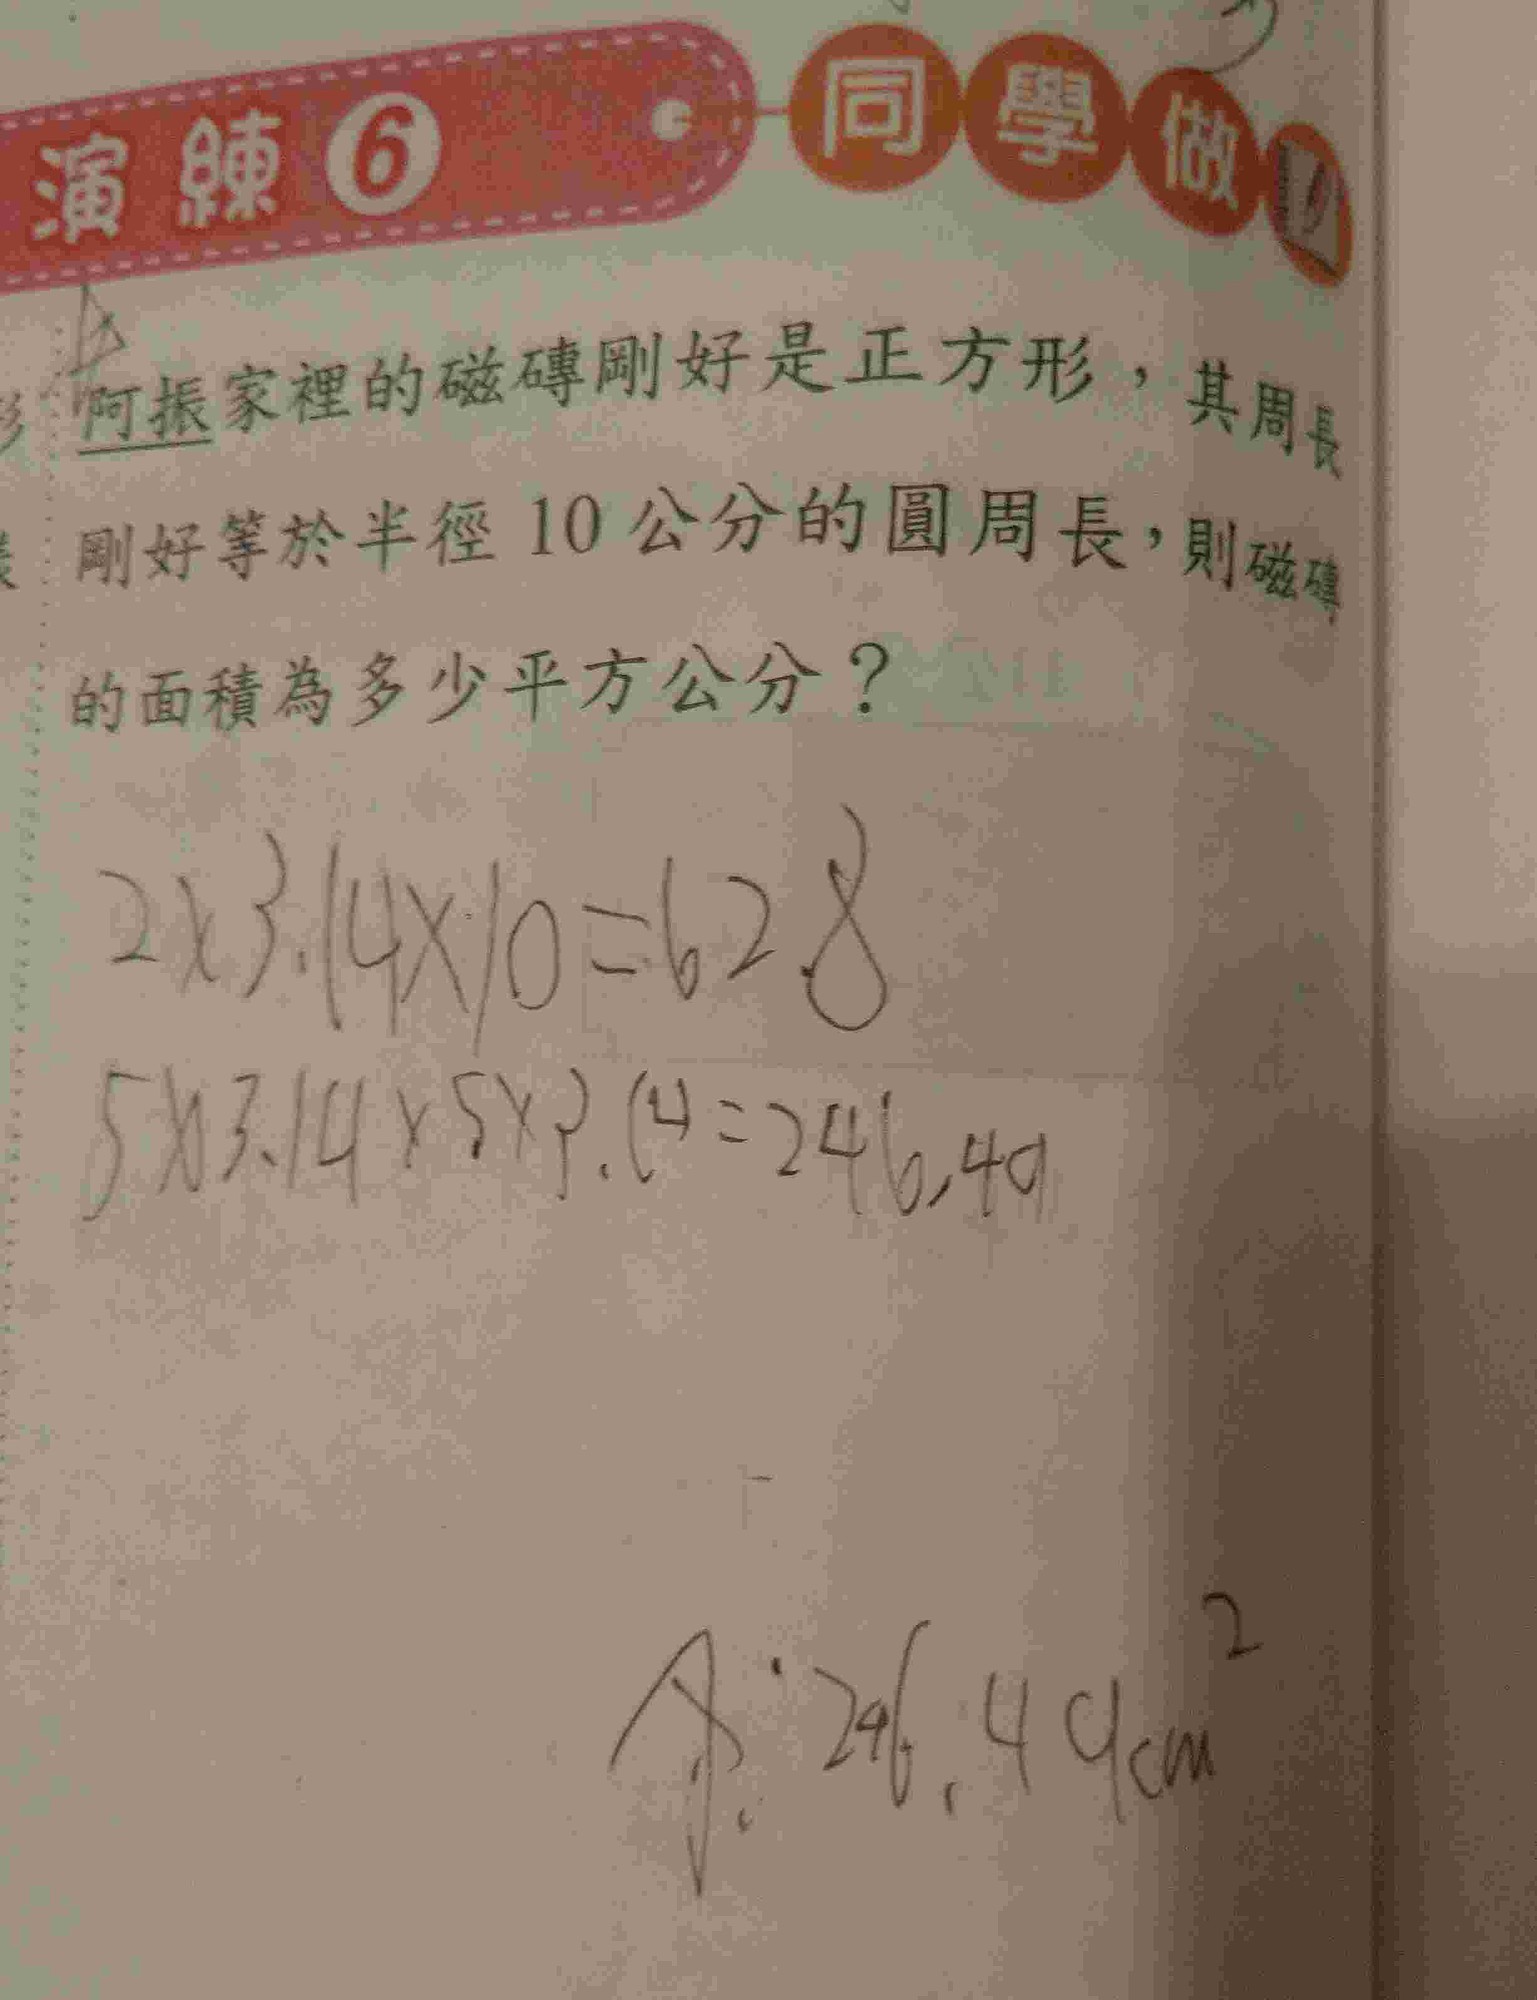 演練6 同學做
阿振家裡的磁磚剛好是正方形，其周長
剛好等於半徑10公分的圓周長，則磁磚
的面積為多少平方公分？
2×3.14×10=62.8
5×3.14×5×3.14=246.49
A:246.49cm²